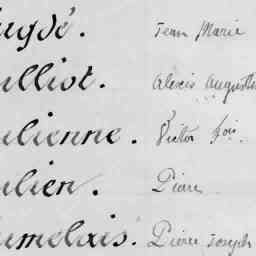 ugdé. Jean Marie
ulliot. Alexis Augustin
ulienne. Victor fois.
ulien. Pierre
umelais. Pierre Joseph